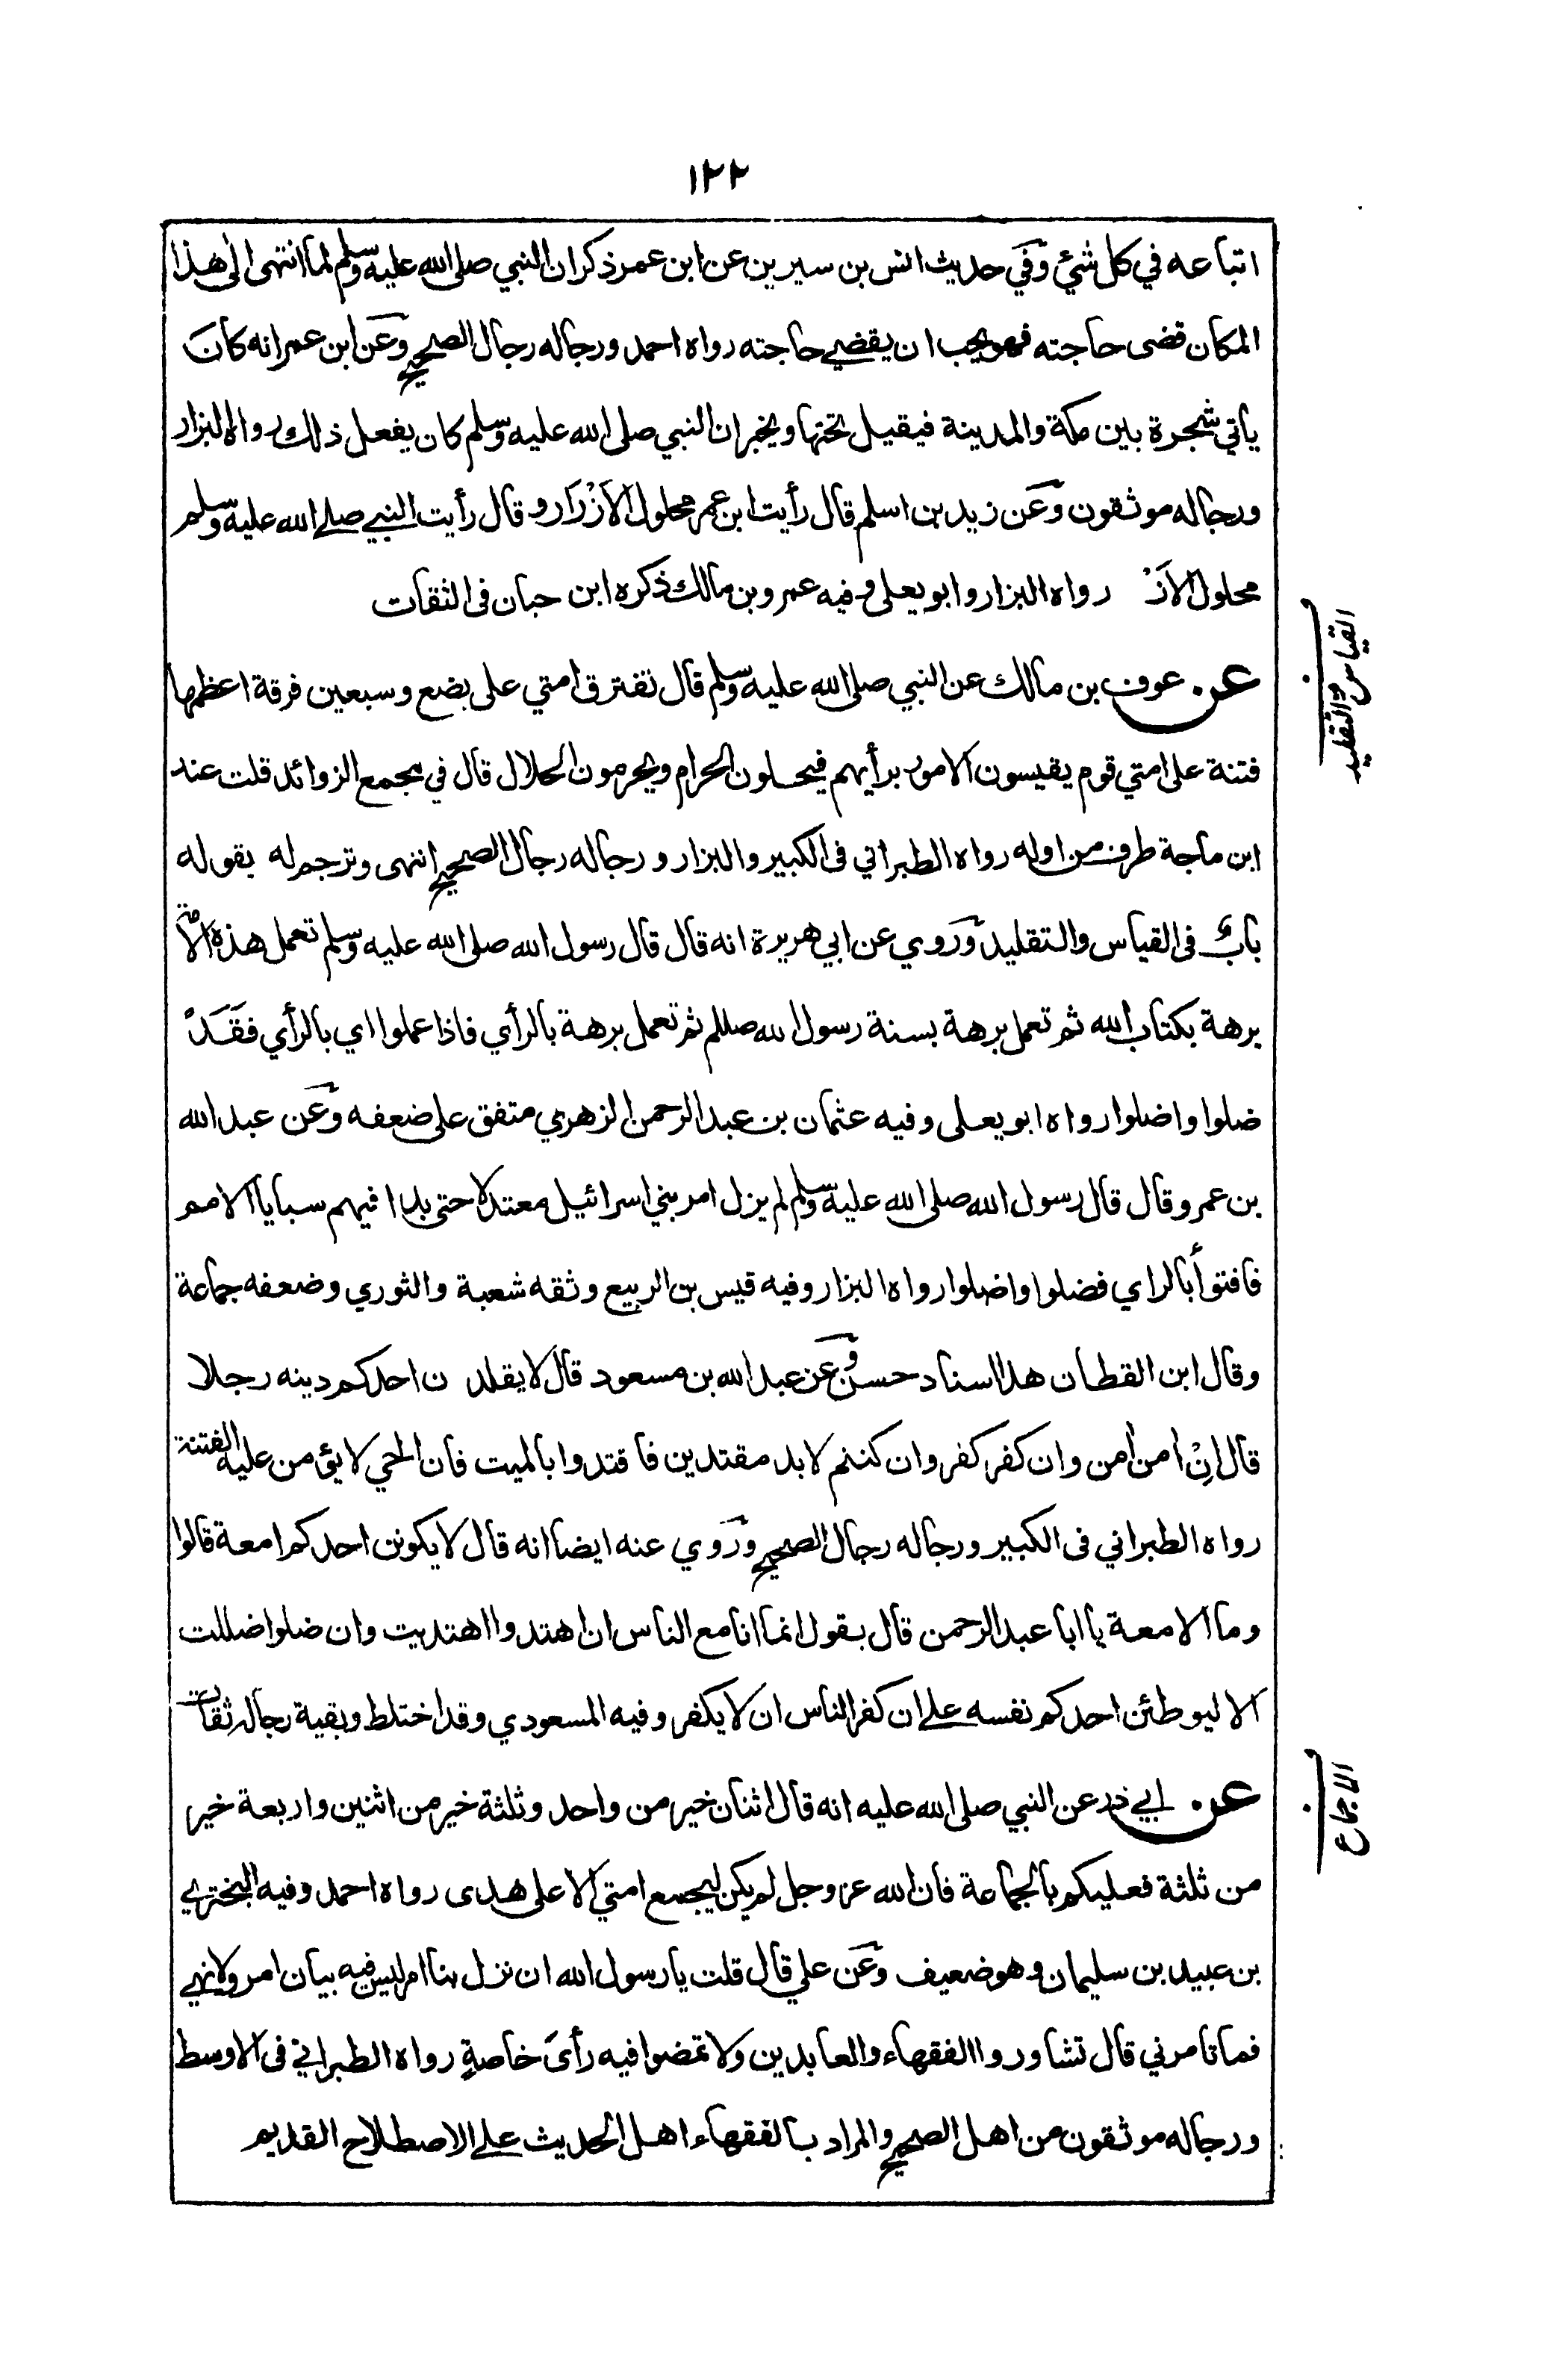 ١٢٢
اتباعه في كل شئ وفي حديث انس بن سيرين عن ابن عمر ذكر ان النبي صلى الله عليه وسلم لما انتهى الى هذا
المكان قضى حاجته فهو يحب ان يقضي حاجته رواه احمد ورجاله رجال الصحيح وعن ابن عمر انه كان
ياتي شجرة بين مكة والمدينة فيقيل تحتها ويخبر ان النبي صلى الله عليه وسلم كان يفعل ذلك رواه البزار
ورجاله موثقون وعن زيد بن اسلم قال رأيت ابن عمر محلول الاَزْرَار و قال رأيت النبي صلى الله عليه وسلم
محلول الاَزْ رواه البزار وابو يعلى وفيه عمرو بن مالك ذكره ابن حبان فى الثقات
القياس والتقليد
عن عوف بن مالك عن النبي صلى الله عليه وسلم قال تفترق امتي على بضع وسبعين فرقة اعظمها
فتنة على امتي قوم يقيسون الامور برأيهم فيحلون الحرام ويحرمون الحلال قال في مجمع الزوائد قلت عند
ابن ماجة طرف من اوله رواه الطبراني فى الكبير والبزار ورجاله رجال الصحيح انتهى وترجم له بقوله
بابٌ فى القياس والتقليد وروي عن ابي هريرة انه قال قال رسول الله صلى الله عليه وسلم تعمل هذه الامّة
برهة بكتاب الله ثم تعمل برهة بسنة رسول الله صللم ثم تعمل برهة بالرأي فاذا عملوا اي بالرأي فقد
ضلوا واضلوا رواه ابو يعلى وفيه عثمان بن عبد الرحمن الزهري متفق على ضعفه وعن عبد الله
بن عمرو قال قال رسول الله صلى الله عليه وسلم لم يزل امر بني اسرائيل معتدلا حتى بدا فيهم سبايا الامم
فافتوأ بالراي فضلوا واضلوا رواه البزار وفيه قيس بن الربيع وثقه شعبة والثوري وضعفه جماعة
وقال ابن القطان هذا اسناد حسن وعن عبد الله بن مسعود قال لا يقلد ن احدكم دينه رجلا
قال اِنْ امن امن وان كفر كفر وان كنتم لا بد مقتدين فاقتدوا بالميت فان الحي لا يؤمن عليه الفتنة
رواه الطبراني فى الكبير ورجاله رجال الصحيح وروي عنه ايضا انه قال لا يكونن احدكم امعة قالوا
وما الامعة يا ابا عبد الرحمن قال بقول انما انا مع الناس ان اهتدوا اهتديت وان ضلوا ضللت
الا ليوطئن احدكم نفسه على ان كفر الناس ان لا يكفر وفيه المسعودي وقد اختلط وبقية رجاله ثقات
الاجماع
عن ابي ذر عن النبي صلى الله عليه انه قال اثنان خير من واحد وثلثة خير من اثنين واربعة خير
من ثلثة فعليكم بالجماعة فان الله عز وجل لم يكن ليجمع امتي الا على هدى رواه احمد وفيه البختري
بن عبيد بن سليمان وهو ضعيف وعن علي قال قلت يا رسول الله ان نزل بنا امر ليس فيه بيان امر ولا نهي
فما تامرني قال تشاوروا الفقهاء والعابدين ولا تمضوا فيه رأىَ خاصةٍ رواه الطبراني فى الاوسط
ورجاله موثقون من اهل الصحيح والمراد بالفقهاء اهل الحديث على الاصطلاح القديم